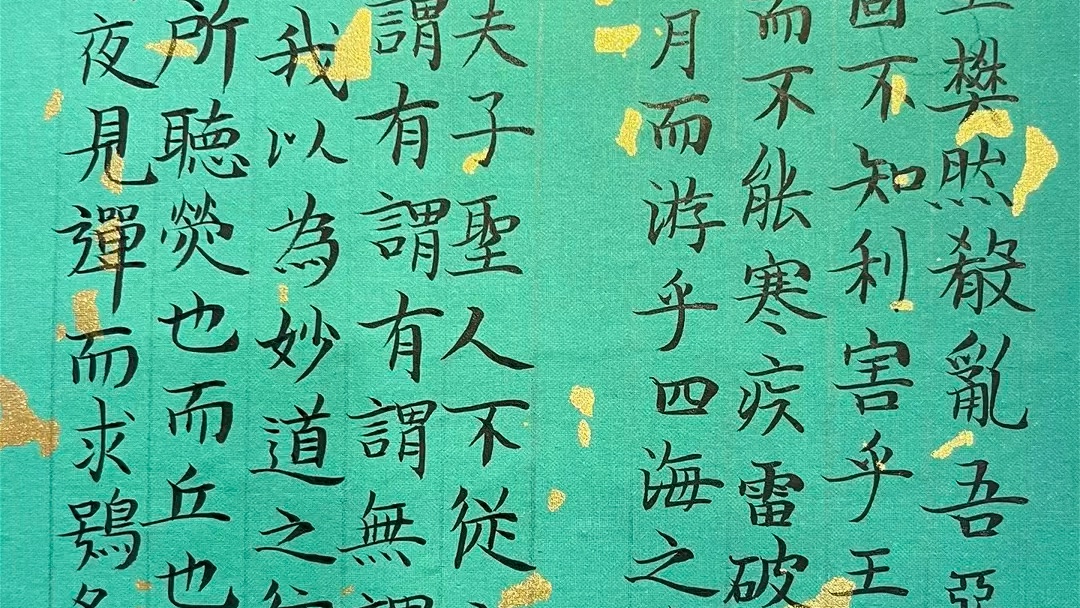 樊然殽亂吾
不知利害乎王
而不能寒疾雷破
月而游乎四海之
夫子聖人不從
謂有謂有謂無
我以為妙道之
所聽熒也而丘也
夜見彈而求鴞